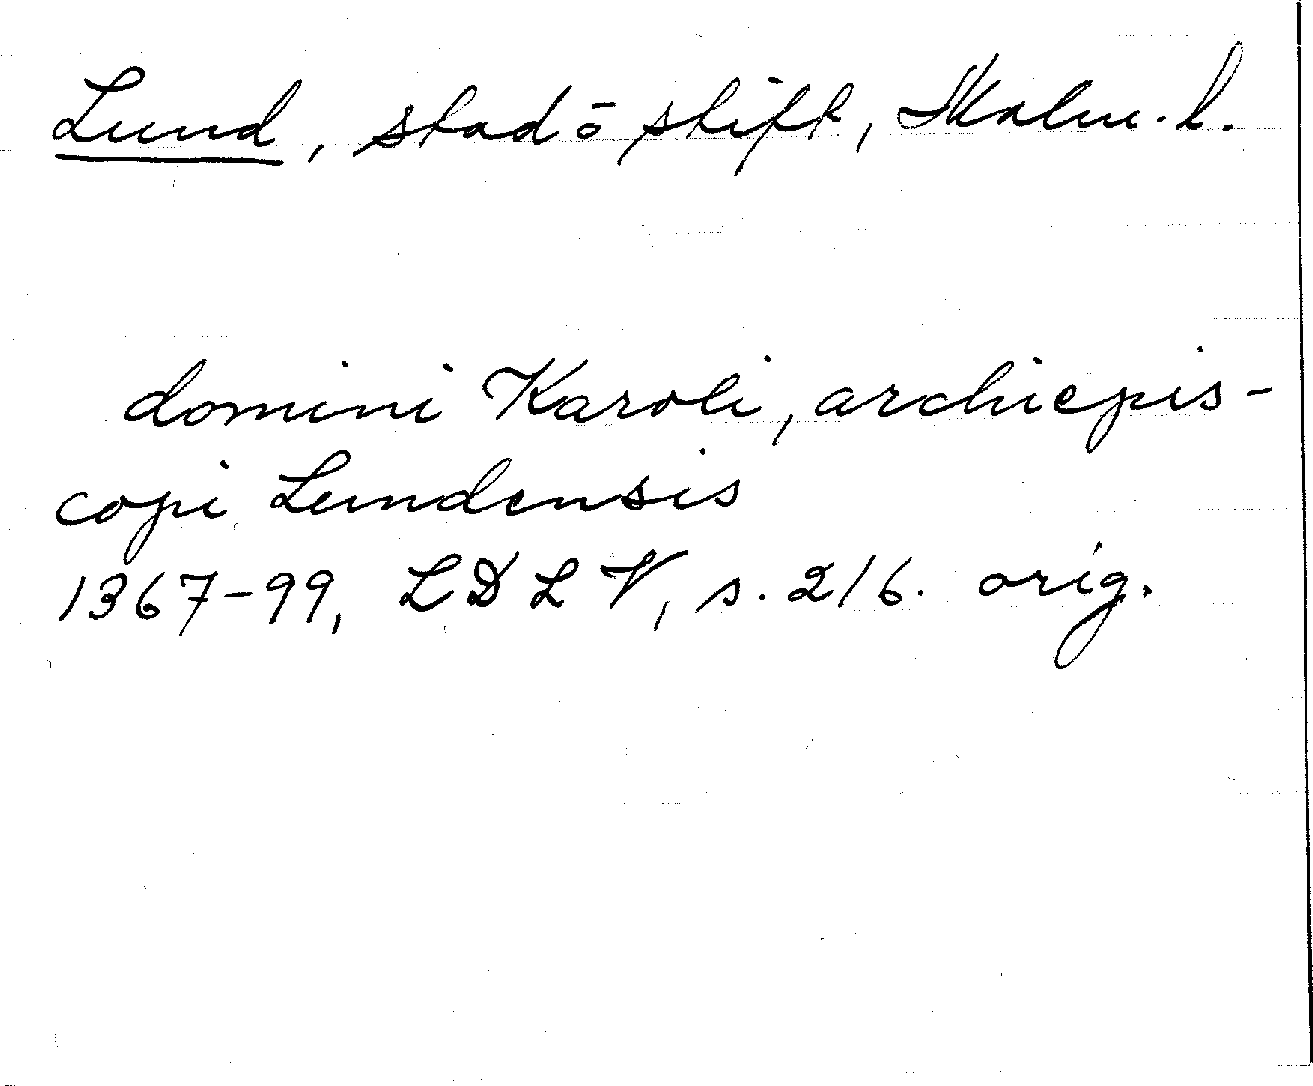 Lund, stad o stift, Malm. l.
domini Karoli, archiepis-
copi Lundensis
1367-99, LDL V, s. 216. orig.